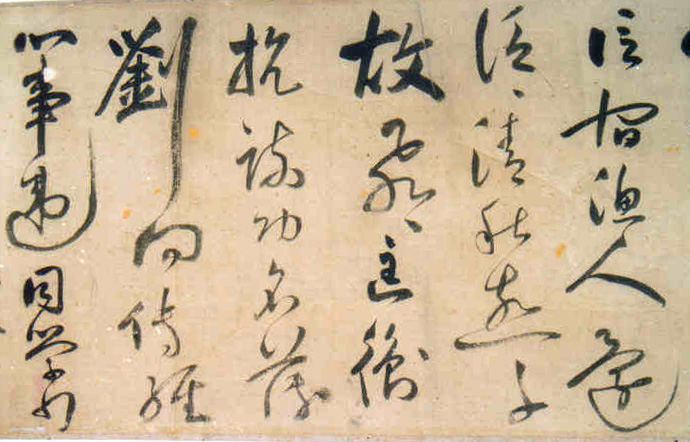 信宿漁人還
泛泛清秋燕子
故飛飛匡衡
抗疏功名薄
劉向傳經
心事違同學少